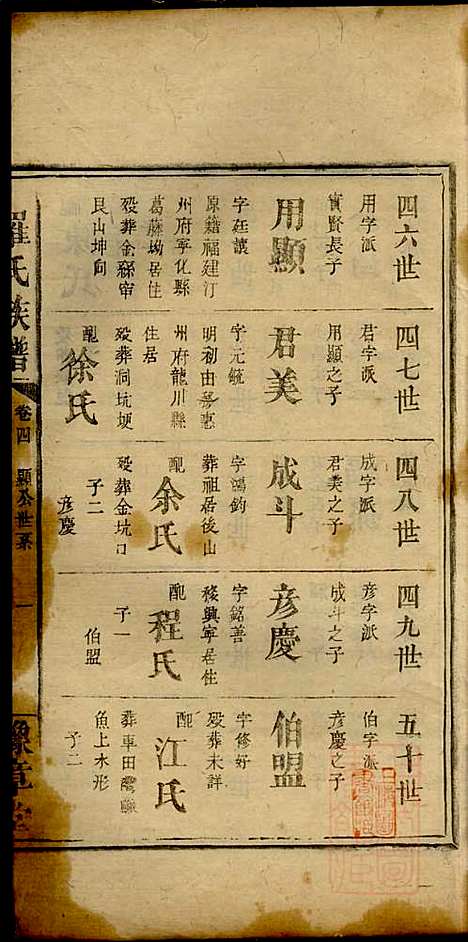 四六世
用字派
實賢長子
用顯
字廷讓
原籍福建汀
州府寧化縣
葛藤坳居住
歿葬金
艮山坤向
四七世
君字派
用顯之子
君美
字元毓
明初由
州府龍川縣
住居
歿葬洞坑埂
配
徐氏
四八世
成字派
君美之子
成斗
字鴻鈞
葬祖居後山
配
余氏
歿葬金坑口
子二
彦慶
四九世
彦字派
成斗之子
彦慶
字銘善
移興寧居住
配
程氏
子一
伯盟
五十世
伯字派
彦慶之子
伯盟
字修好
歿葬未詳
配
江氏
葬車田
魚上水形
子二
羅氏族譜
卷四
顯公世系
一
豫章堂